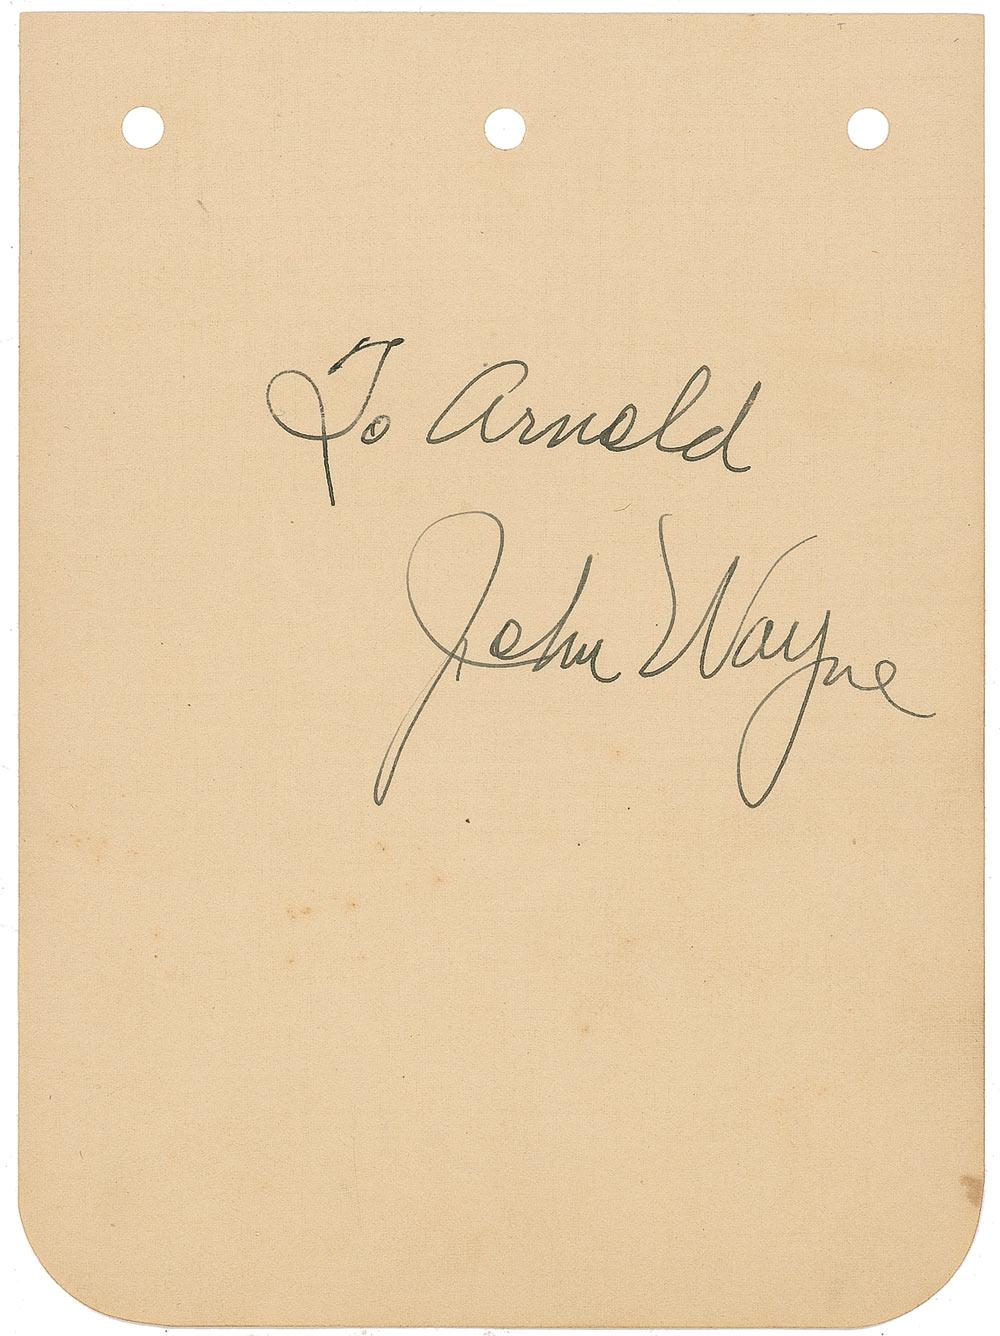 To Arnold
John Wayne